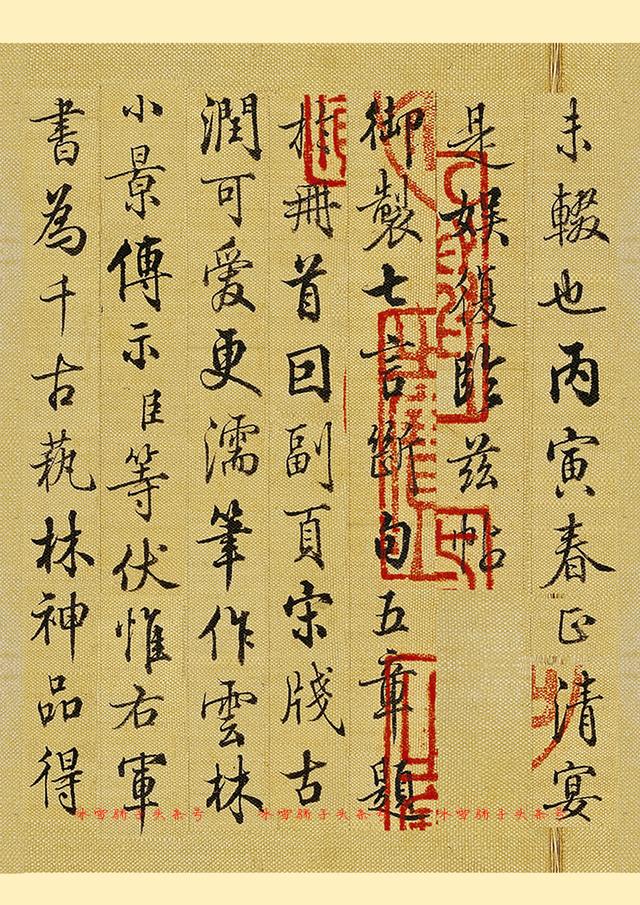 未輟也丙寅春正清宴
是娱復臨兹帖
御製七言斷句五章題
於冊首回副頁宋牋古
潤可愛更濡筆作雲林
小景傳示臣等伏惟右軍
書為千古蓺林神品得